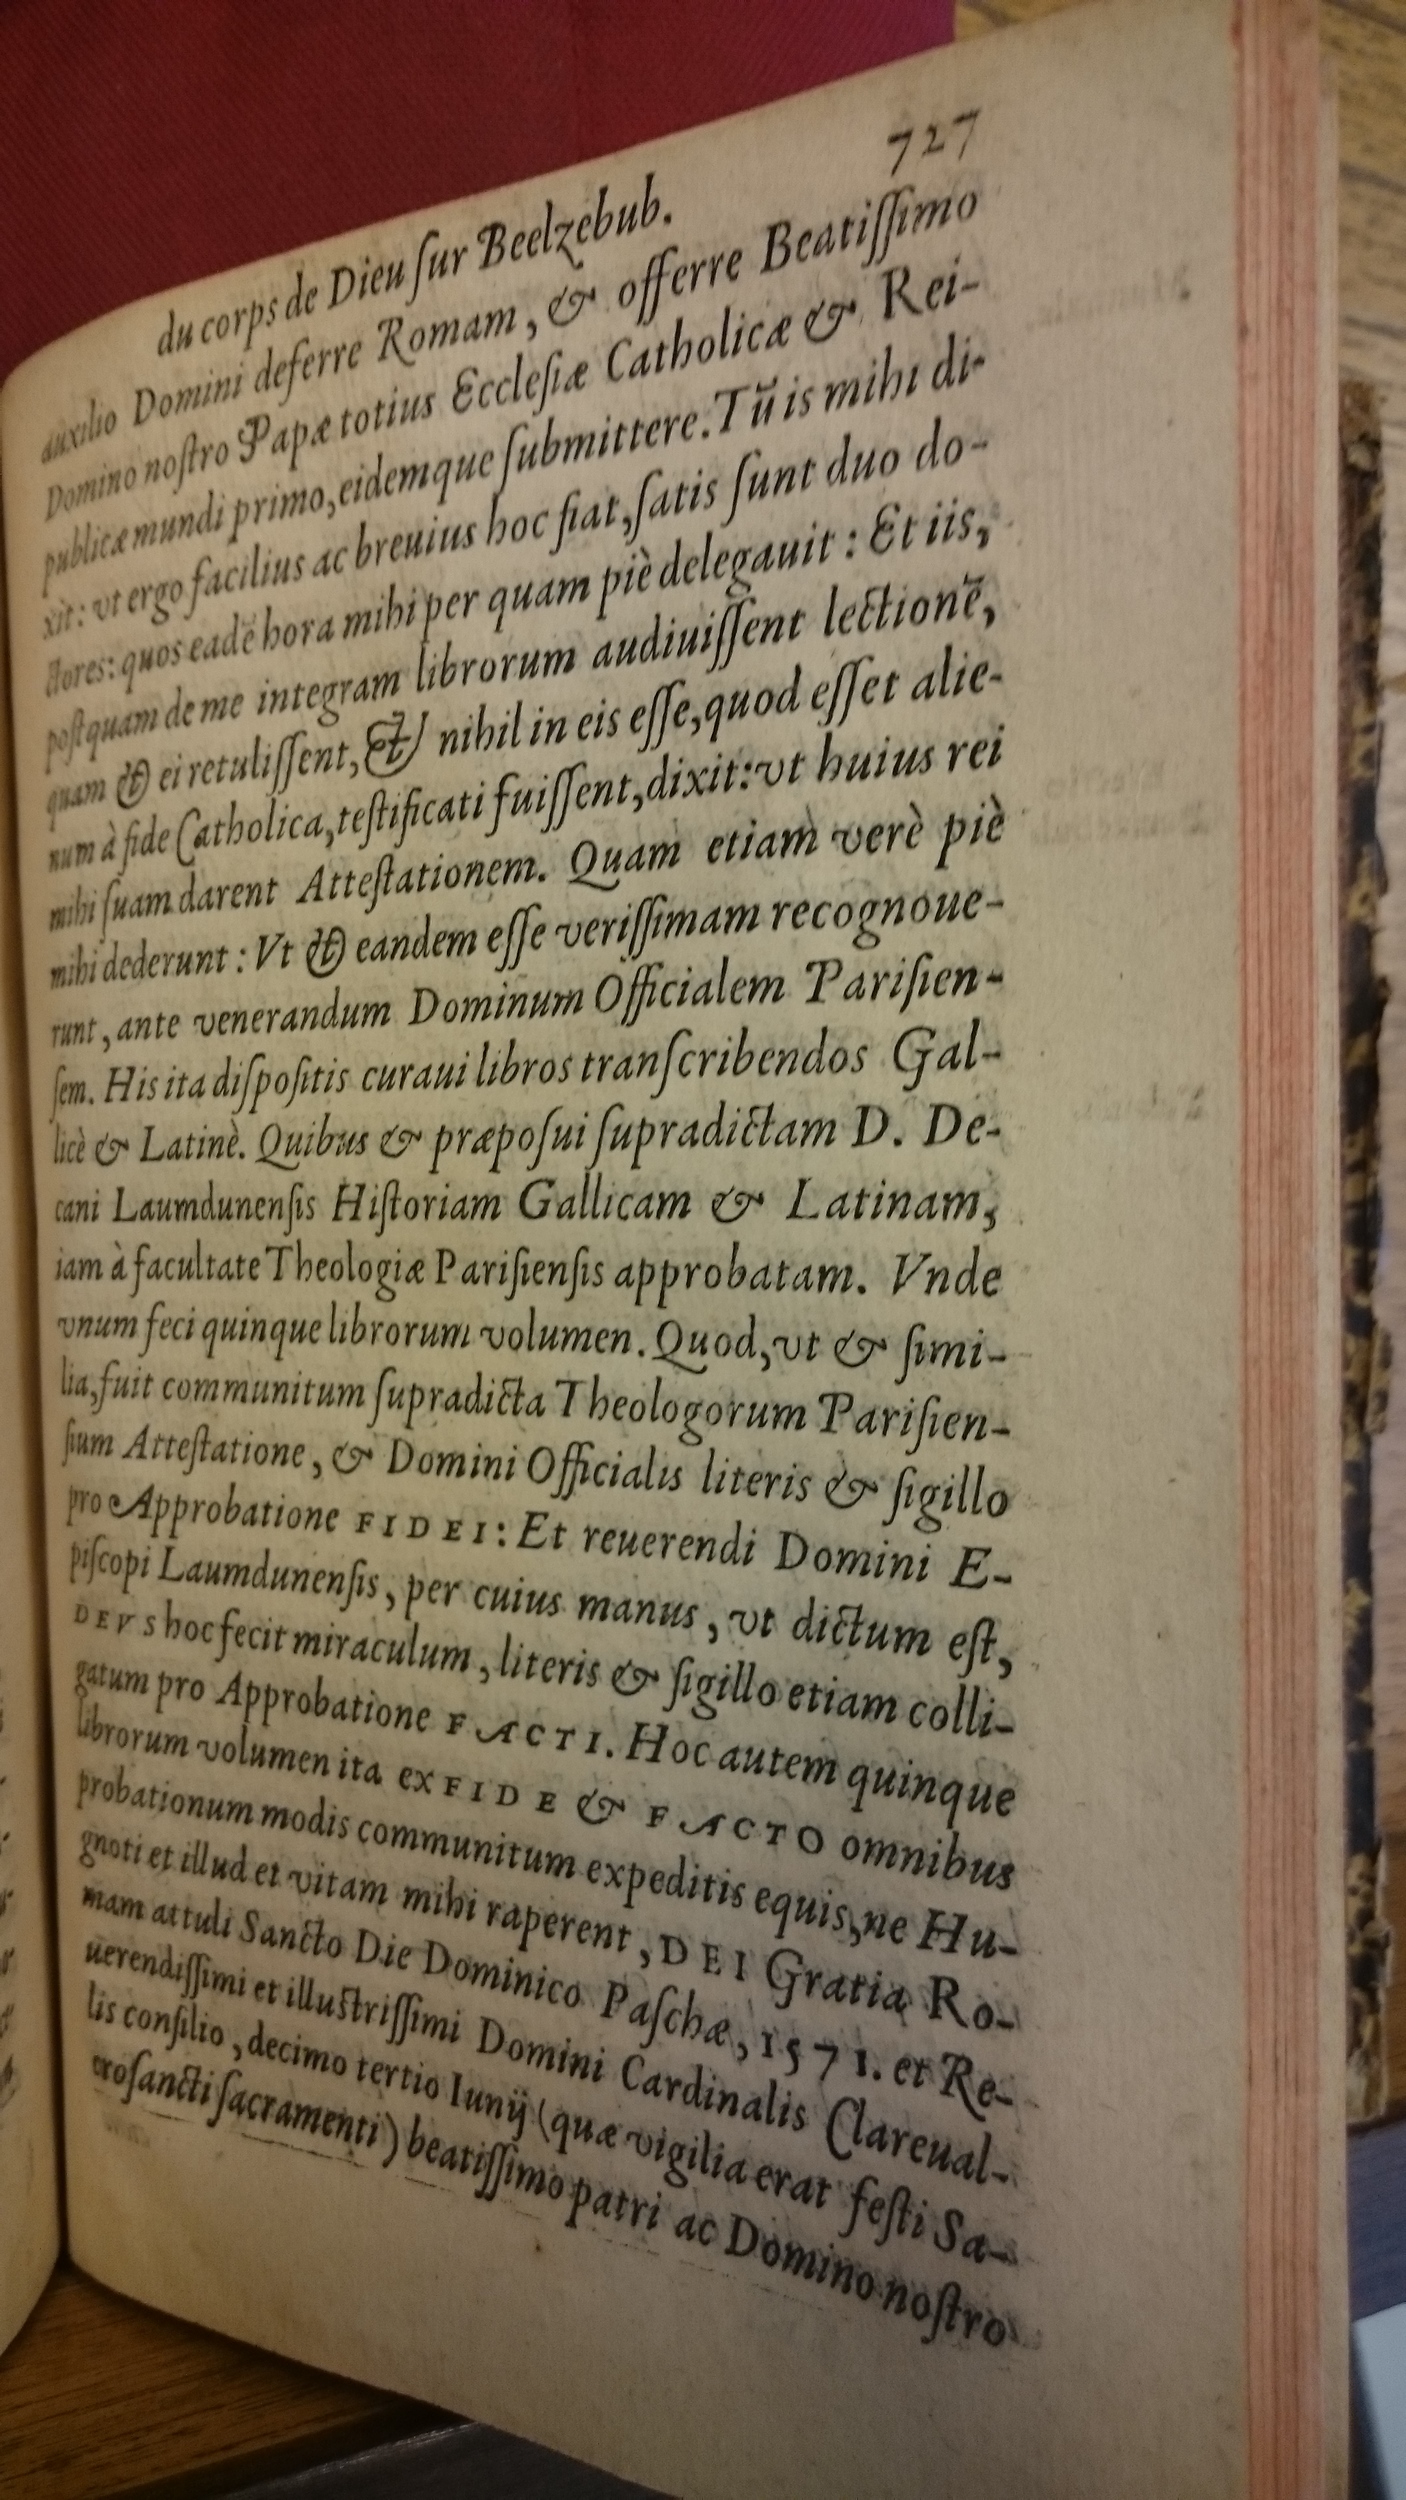 727
du corps de Dieu ſur Beelzebub.
auxilio Domini deferre Romam, & offerre Beatiſſimo
Domino noſtro Papæ totius Eccleſiæ Catholicæ & Rei-
publicæ mundi primo, eidemque ſubmittere. Tũ is mihi di-
xit: vt ergo facilius ac breuius hoc fiat, ſatis ſunt duo do-
ctores: quos eadẽ hora mihi per quam piè delegauit: Et iis,
poſtquam de me integram librorum audiuiſſent lectionẽ,
quam & ei retuliſſent, & nihil in eis eſſe, quod eſſet alie-
num à fide Catholica, teſtificati fuiſſent, dixit: vt huius rei
mihi ſuam darent Atteſtationem. Quam etiam verè piè
mihi dederunt: Vt & eandem eſſe veriſſimam recognoue-
runt, ante venerandum Dominum Officialem Pariſien-
ſem. His ita diſpoſitis curaui libros tranſcribendos Gal-
licè & Latinè. Quibus & præpoſui ſupradictam D. De-
cani Laumdunenſis Hiſtoriam Gallicam & Latinam,
iam à facultate Theologiæ Pariſienſis approbatam. Vnde
vnum feci quinque librorum volumen. Quod, vt & ſimi-
lia, fuit communitum ſupradicta Theologorum Pariſien-
ſium Atteſtatione, & Domini Officialis literis & ſigillo
pro Approbatione FIDEI: Et reuerendi Domini E-
piſcopi Laumdunenſis, per cuius manus, vt dictum eſt,
DEVS hoc fecit miraculum, literis & ſigillo etiam colli-
gatum pro Approbatione FACTI. Hoc autem quinque
librorum volumen ita ex FIDE & FACTO omnibus
probationum modis communitum expeditis equis, ne Hu-
gnoti et illud et vitam mihi raperent, DEI Gratia Ro-
mam attuli Sancto Die Dominico Paſchæ, 1571. et Re-
uerendiſſimi et illuſtriſſimi Domini Cardinalis Clareual-
lis conſilio, decimo tertio Iunij (quæ vigilia erat feſti Sa-
croſancti ſacramenti) beatiſſimo patri ac Domino noſtro